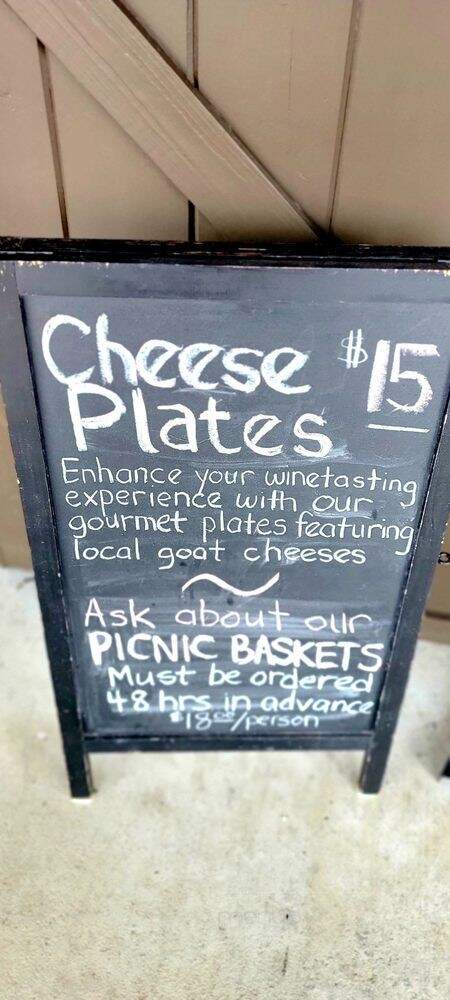 Cheese $15
Plates
Enhance your winetasting
experience with our
gourmet plates featuring
local goat cheeses
~
Ask about our
PICNIC BASKETS
Must be ordered
48 hrs in advance
$18.00/person